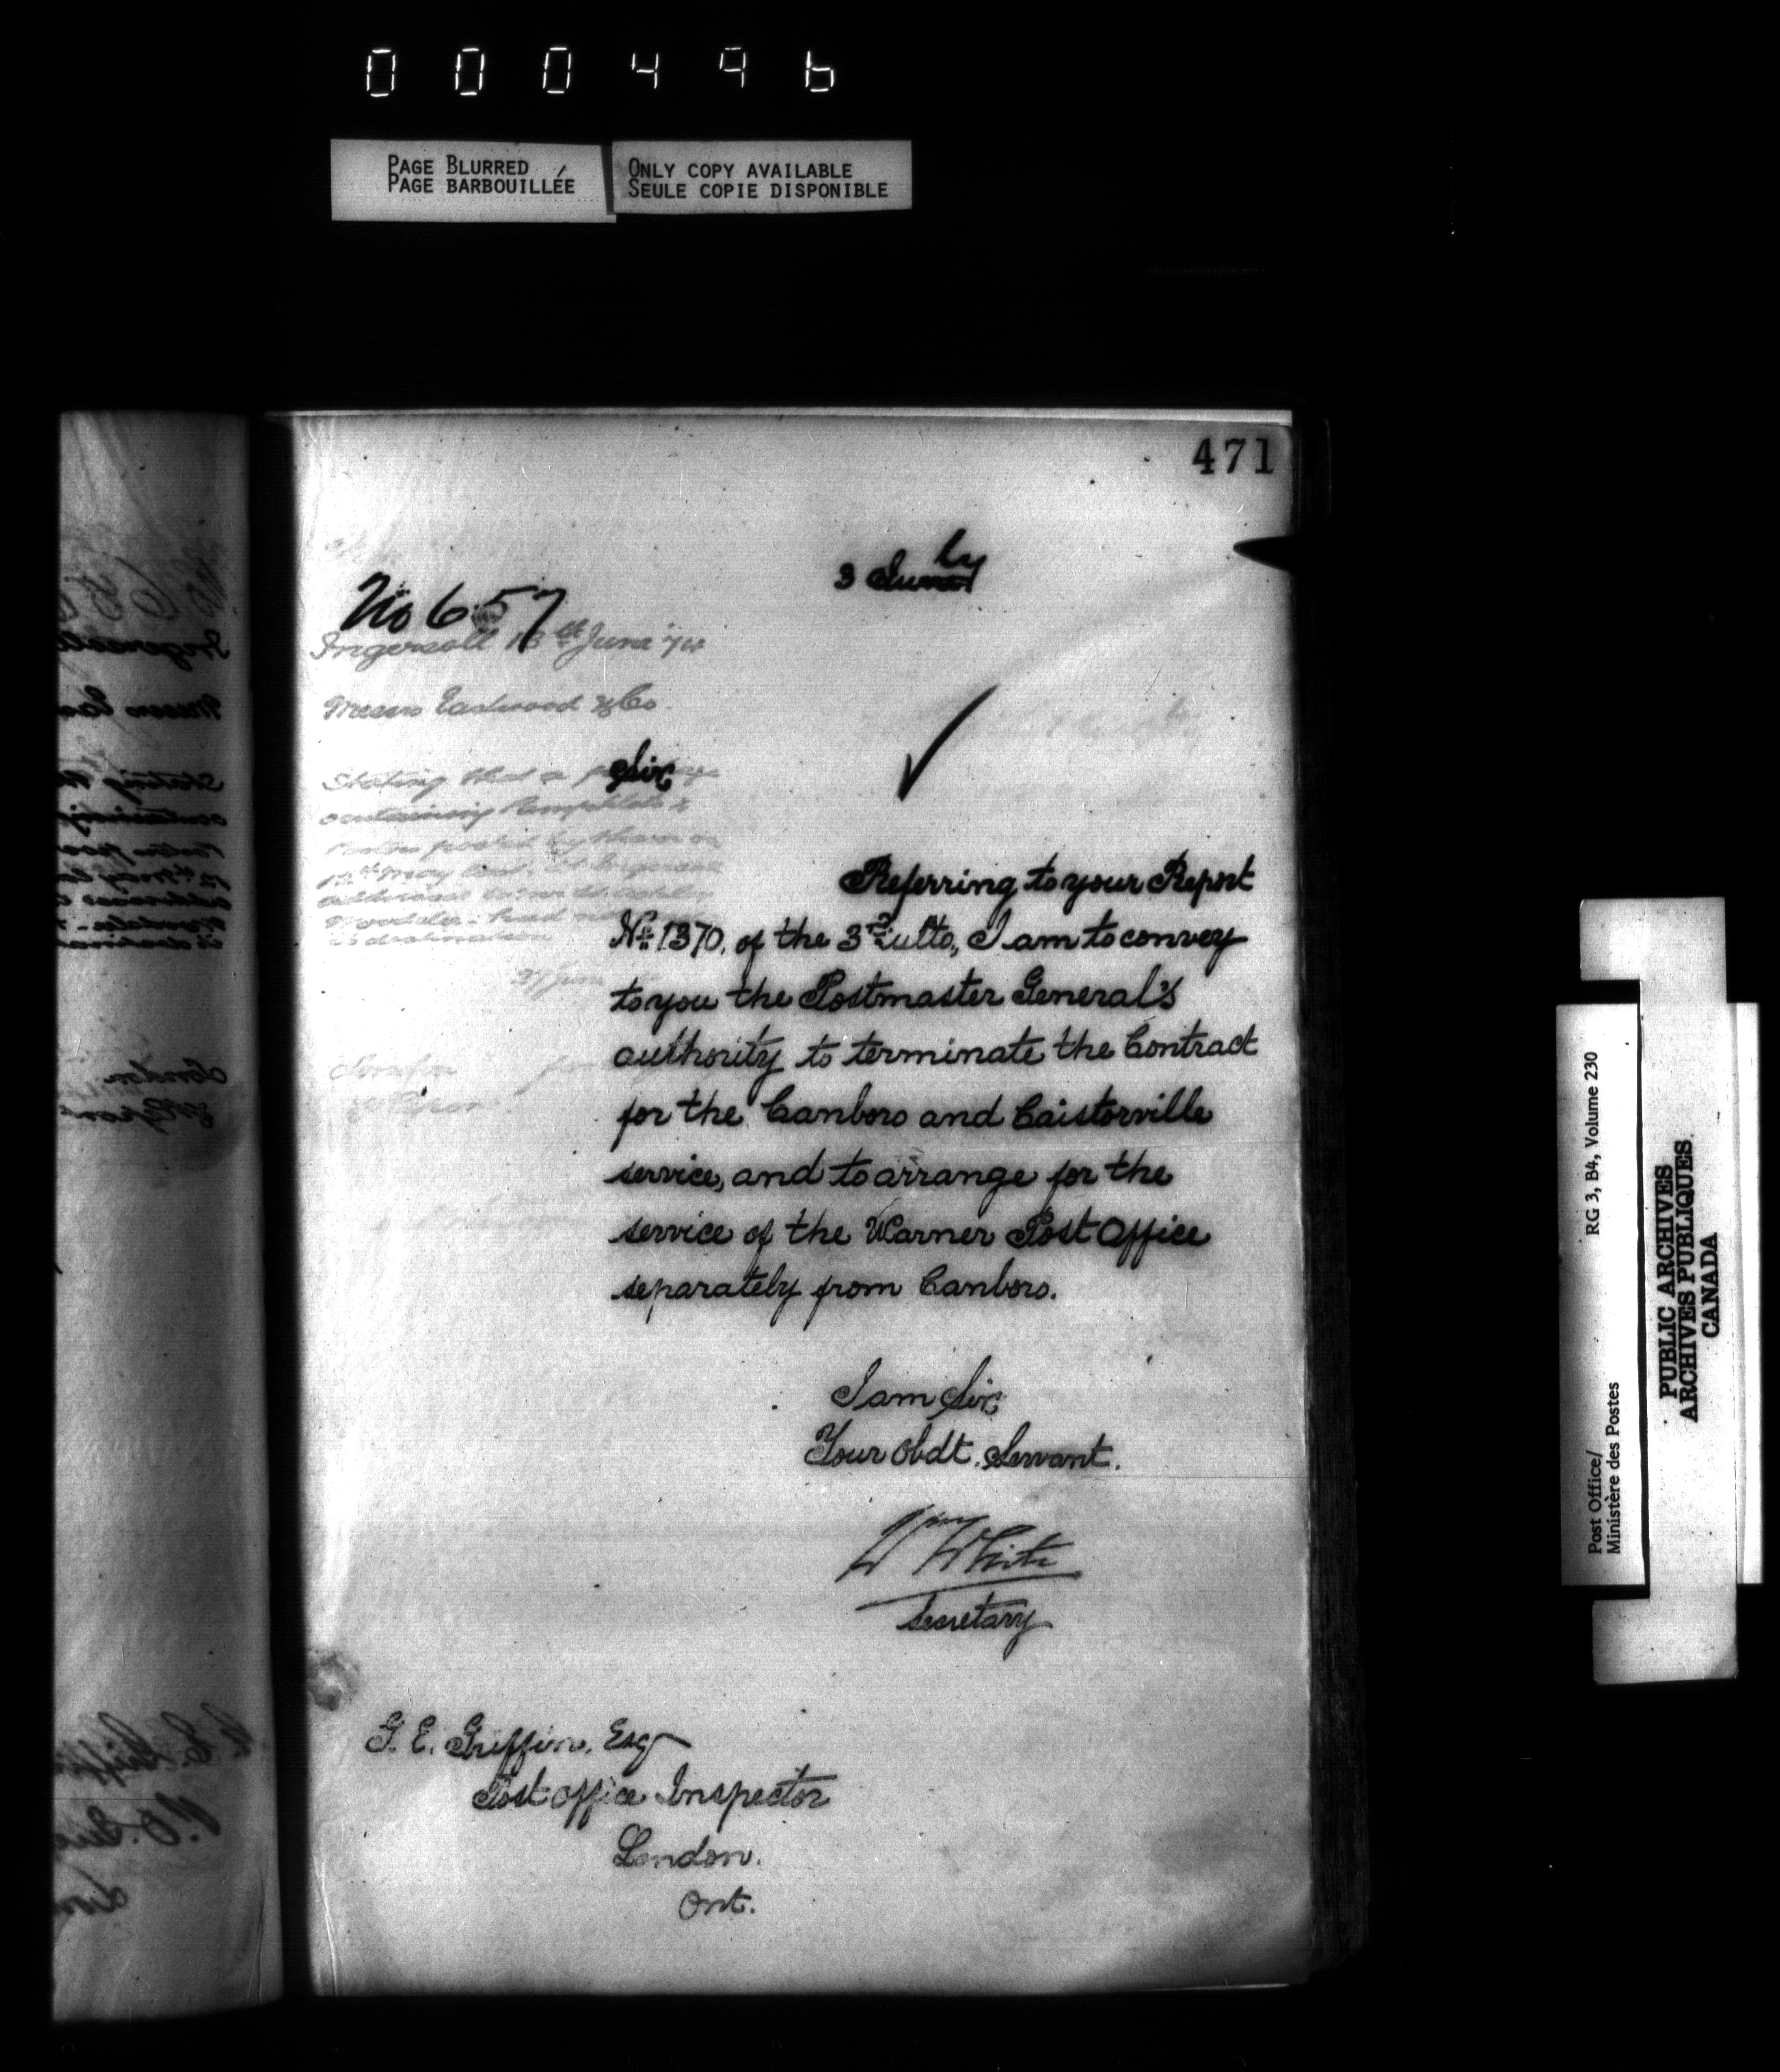 000496
PAGE BLURRED
PAGE BARBOUILLÉE
ONLY COPY AVAILABLE
SEULE COPIE DISPONIBLE
471
3 July
No 657
Ingersoll 13th June 74
Messrs Eastwood & Co.
Sir,
Stating that a
containing Pamphlets &
posted by them on
May
addressed to
had not
its destination
Referring to your Report
No. 1370, of the 3rd ulto, I am to convey
to you the Postmaster General's
authority to terminate the Contract
for the Canboro and Caistorville
service, and to arrange for the
service of the Warner Post Office
separately from Canboro.
London for
Report.
I am Sir,
Your Obdt. Servant.
Wm White
Secretary
G. E. Griffin, Esq
Post Office Inspector
London.
Ont.
Post Office/
Ministère des Postes
RG 3, B4, Volume 230
PUBLIC ARCHIVES
ARCHIVES PUBLIQUES
CANADA